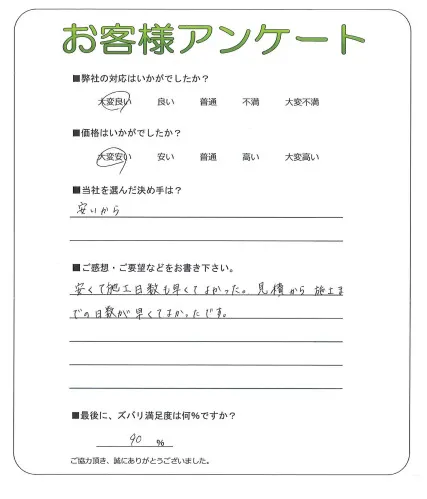 お客様アンケート
■弊社の対応はいかがでしたか？
大変良い 良い 普通 不満 大変不満
■価格はいかがでしたか？
大変安い 安い 普通 高い 大変高い
■当社を選んだ決め手は？
安いから
■ご感想・ご要望などをお書き下さい。
安くて施工日数も早くてよかった。見積から施工ま
での日数が早くてよかったです。
■最後に、ズバリ満足度は何％ですか？
90 ％
ご協力頂き、誠にありがとうございました。